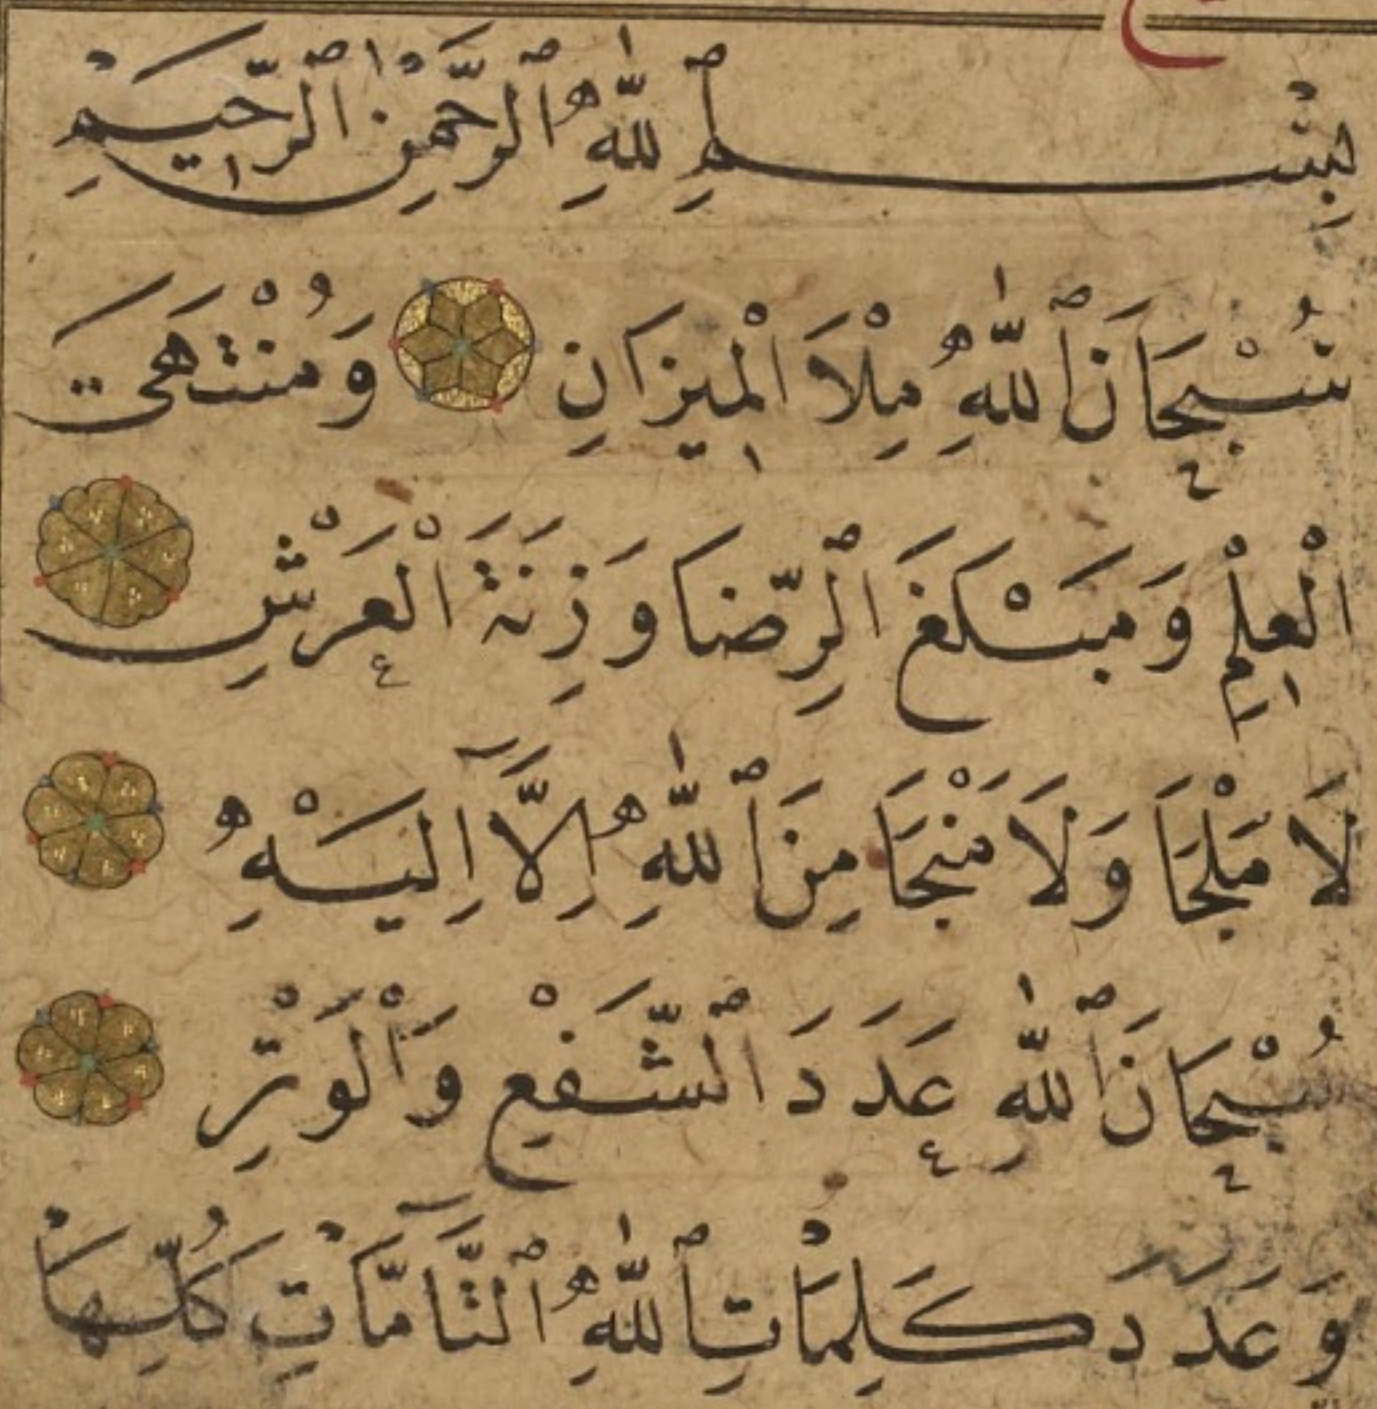 بِسْمِ ٱللّٰهِ ٱلرَّحْمٰنِ ٱلرَّحِيمِ
سُبْحَانَ ٱللّٰهِ مِلْاَ الْمِيزَانِ وَمُنْتَهَى
الْعِلْمِ وَمَبْلَغَ ٱلرِّضَا وَزِنَةَ الْعَرْشِ
لَا مَلْجَا وَلَا مَنْجَا مِنَ ٱللّٰهِ اِلَّا اِلَيْهِ
سُبْحَانَ ٱللّٰهِ عَدَدَ ٱلشَّفْعِ وَالْوَتْرِ
وَعَدَدَ كَلِمَاتِ ٱللّٰهِ ٱلتَّامَّاتِ كُلِّهَا